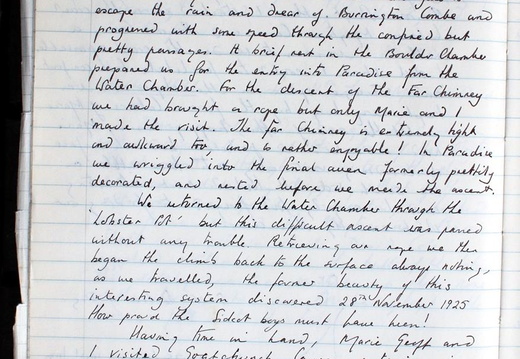 escape the rain and drear of Burrington Combe and
progressed with some speed through the confined but
pretty passages. A brief rest in the Boulder Chamber
prepared us for the entry into Paradise from the
Water Chamber. For the descent of the Far Chimney
we had brought a rope but only Marie and I
made the visit. The Far Chimney is extremely tight
and awkward too, and is rather enjoyable! In Paradise
we wriggled into the final aven formerly prettily
decorated, and rested before we made the ascent.
We returned to the Water Chamber through the
'Lobster Pot' but this difficult ascent was passed
without any trouble. Retrieving our rope we then
began the climb back to the surface always noting,
as we travelled, the former beauty of this
interesting system discovered 28th November 1925
How proud the Sidcot boys must have been!
Having time in hand, Marie Geoff and
I visited Goatchurch